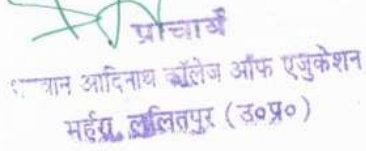 प्राचार्य
आदिनाथ कॉलेज ऑफ एजुकेशन
महर्रा, ललितपुर (उ०प्र०)